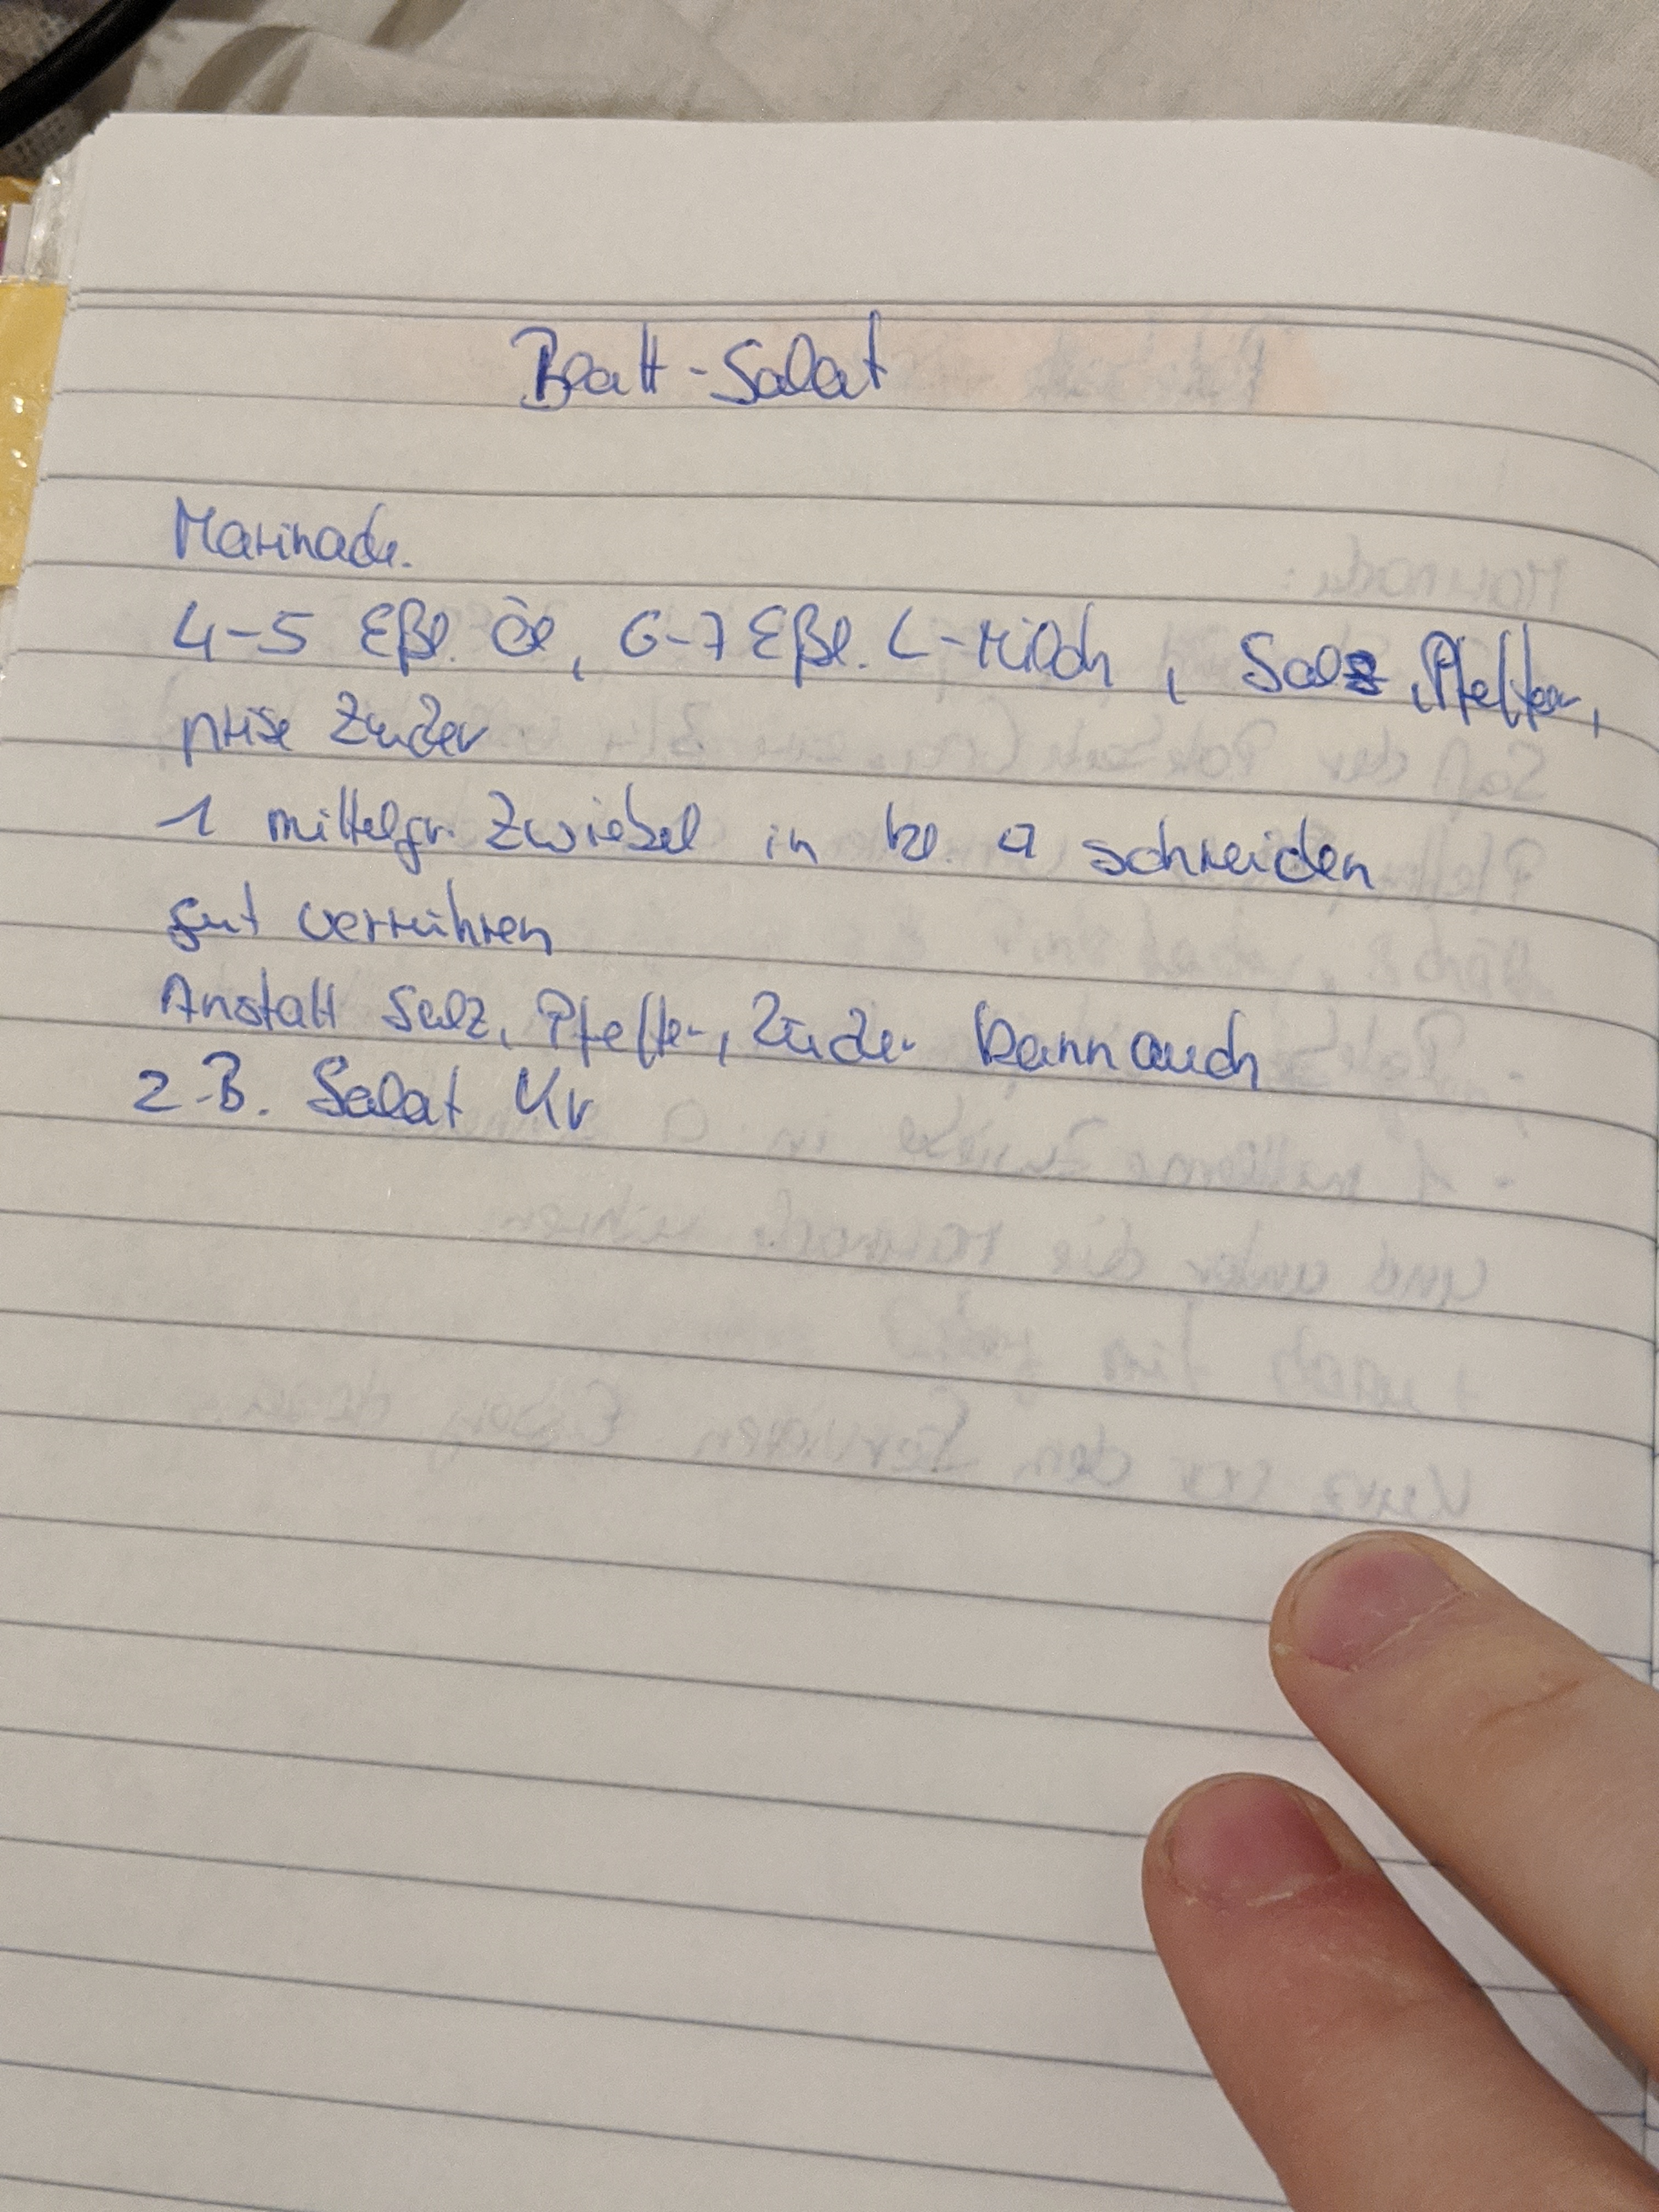 Blatt-Salat
Marinade.
4-5 Eßl. Öl, 6-7 Eßl. C-Milch, Salz, Pfeffer,
prise Zucker
1 mittelgr. Zwiebel in kl. □ schneiden
gut verrühren
Anstatt Salz, Pfeffer, Zucker kann auch
z.B. Salat Kr